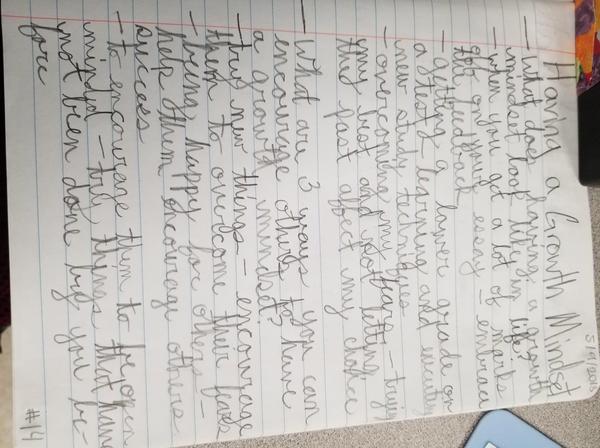 5/9/2018
Having a Growth Mindset
- What does having a growth
mindset look like in life?
- when you get a lot of marks
off on your essay - embrace
the feedback
- getting a lower grade on
a test & learning and executing
new study techniques
- overcoming my fears - trying
my best and not letting
the past affect my choice
- What are 3 ways you can
encourage others to have
a growth mindset?
- try new things - encourage
them to overcome their fears
- being happy for others -
help them encourage others
success
- to encourage them to be open
minded - try things that have
not been done by you be-
fore
#14